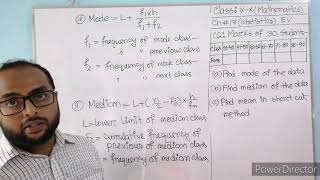 (iii) Mode = L + f₁×h / f₁+f₂
f₁ = frequency of mode class -
" previous class
f₂ = frequency of mode class -
" next class
ii) Median = L + (n/2 - Fc) × h/fm
L = Lower Limit of median class
Fc = cumulative frequency of
previous of median class
= frequency of median class
Class: ix-x (Mathematics)
Ch#17 (Statistics) EV
CQ1 Marks of 30 Students-
(a) Find mode of the data
(b) Find median of the data
(c) Find mean in short cut
method
PowerDirector